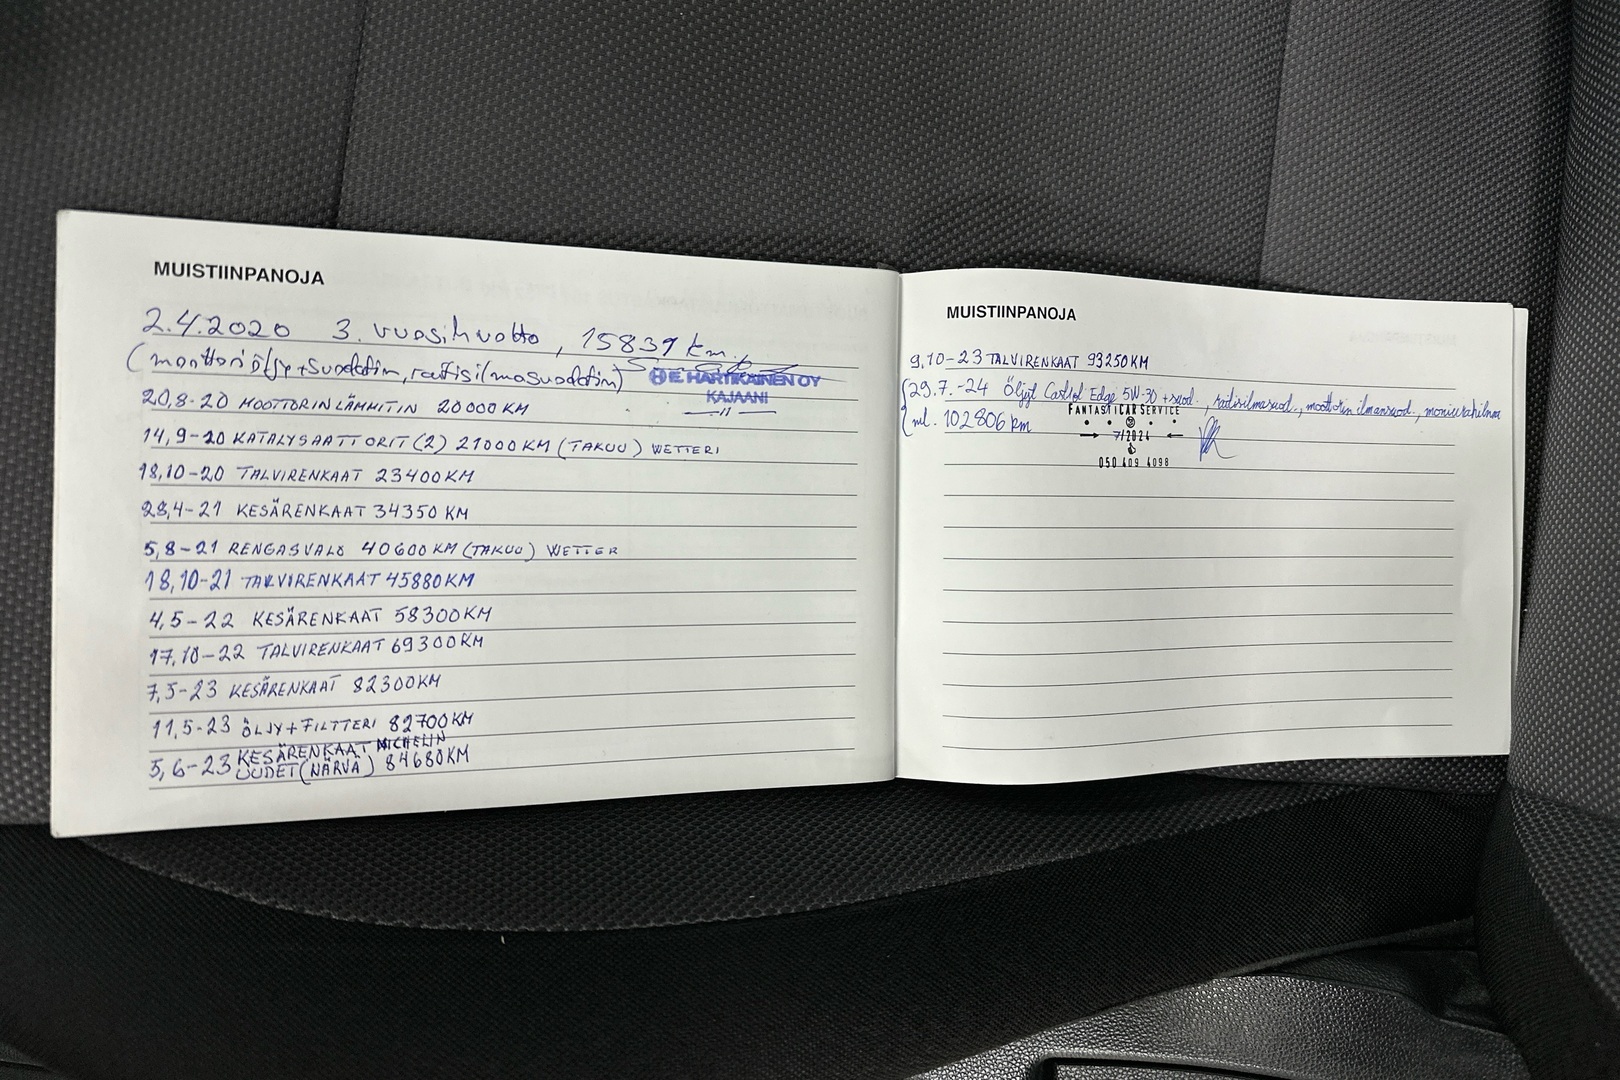 MUISTIINPANOJA
2.4.2020 3. vuosihuolto, 15839 km.
(moottoriöljy+suodatin, raitisilmasuodatin)
E. HARTIKAINEN OY
KAJAANI
20,8-20 MOOTTORINLÄMMITIN 20000 KM
14,9-20 KATALYSAATTORIT (2) 21000 KM (TAKUU) WETTERI
18,10-20 TALVIRENKAAT 23400 KM
28,4-21 KESÄRENKAAT 34350 KM
5,8-21 RENGASVALO 40600 KM (TAKUU) WETTER
18,10-21 TALVIRENKAAT 45880 KM
4,5-22 KESÄRENKAAT 58300 KM
17,10-22 TALVIRENKAAT 69300 KM
7,5-23 KESÄRENKAAT 82300 KM
11,5-23 ÖLJY+FILTTERI 82700 KM
5,6-23 KESÄRENKAAT MICHELIN
UUDET (NÄRVÄ) 84680 KM
MUISTIINPANOJA
9,10-23 TALVIRENKAAT 93250 KM
29.7.-24 Öljyt Castrol Edge 5W-30 + suod., raitisilmasuod., moottorin ilmansuod.,
ml. 102806 km
FANTASTICAR SERVICE
7/2024
050 409 4098